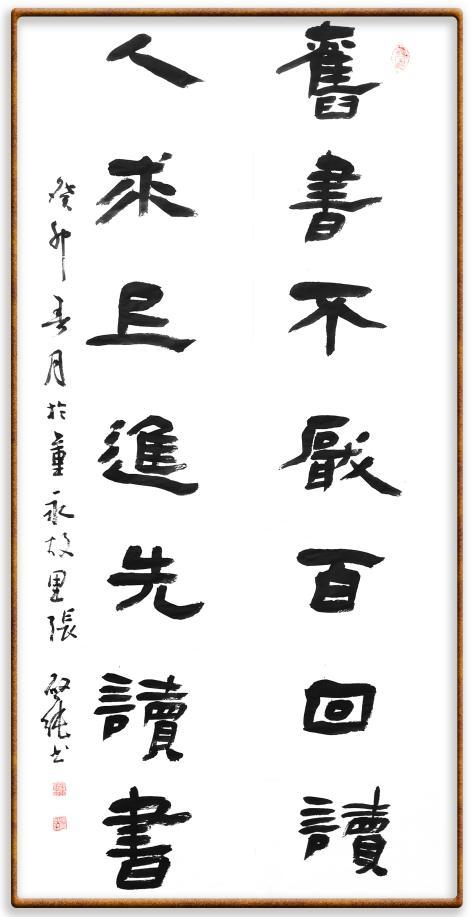 舊書不厭百回讀
人求上進先讀書
癸卯春月於董永故里張书